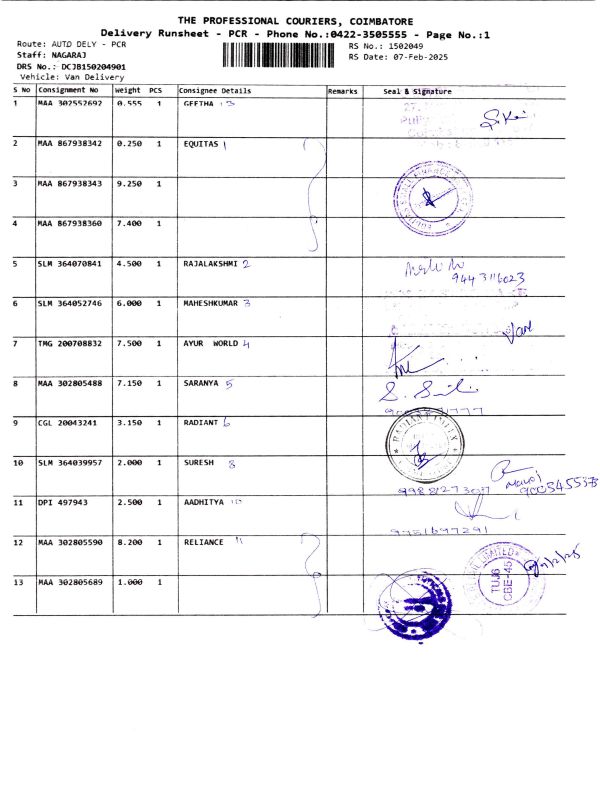 THE PROFESSIONAL COURIERS, COIMBATORE
Delivery Runsheet - PCR - Phone No.:0422-3505555 - Page No.:1
Route: AUTO DELY - PCR RS No.: 1502049
Staff: NAGARAJ RS Date: 07-Feb-2025
DRS No.: DCJB150204901
Vehicle: Van Delivery
S No Consignment No Weight PCS Consignee Details Remarks Seal & Signature
1 MAA 302552692 0.555 1 GEETHA
2 MAA 867938342 0.250 1 EQUITAS 1
3 MAA 867938343 9.250 1
4 MAA 867938360 7.400 1
5 SLM 364070841 4.500 1 RAJALAKSHMI 2
9443116023
6 SLM 364052746 6.000 1 MAHESHKUMAR 3
7 TMG 200708832 7.500 1 AYUR WORLD 4
8 MAA 302805488 7.150 1 SARANYA 5
9 CGL 20043241 3.150 1 RADIANT 6
10 SLM 364039957 2.000 1 SURESH 8
11 DPI 497943 2.500 1 AADHITYA 10
9751697291
12 MAA 302805590 8.200 1 RELIANCE 11
LIMITED
TUJ6
CBE-45
13 MAA 302805689 1.000 1